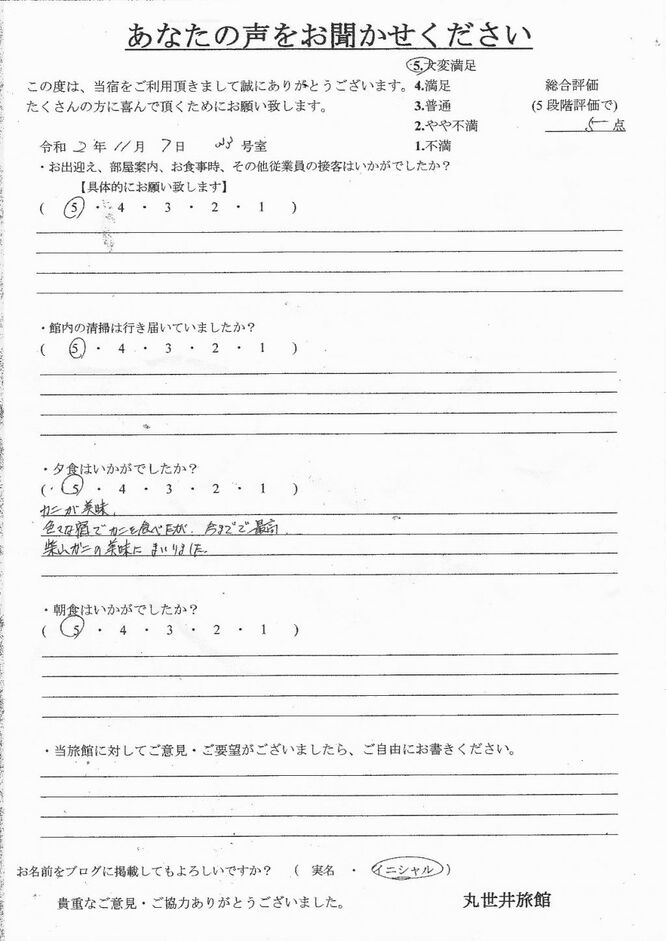 あなたの声をお聞かせください
この度は、当宿をご利用頂きまして誠にありがとうございます。
たくさんの方に喜んで頂くためにお願い致します。
5.大変満足
4.満足
3.普通
2.やや不満
1.不満
総合評価
(5段階評価で)
5 点
令和 2 年 11 月 7 日 号室
・お出迎え、部屋案内、お食事時、その他従業員の接客はいかがでしたか?
【具体的にお願い致します】
( 5 ・ 4 ・ 3 ・ 2 ・ 1 )
・館内の清掃は行き届いていましたか?
( 5 ・ 4 ・ 3 ・ 2 ・ 1 )
・夕食はいかがでしたか?
( 5 ・ 4 ・ 3 ・ 2 ・ 1 )
カニが美味、
色々な宿でカニを食べたが、今までで最高、
柴山ガニの美味にまいりました。
・朝食はいかがでしたか?
( 5 ・ 4 ・ 3 ・ 2 ・ 1 )
・当旅館に対してご意見・ご要望がございましたら、ご自由にお書きください。
お名前をブログに掲載してもよろしいですか? ( 実名 ・ イニシャル )
貴重なご意見・ご協力ありがとうございました。
丸世井旅館